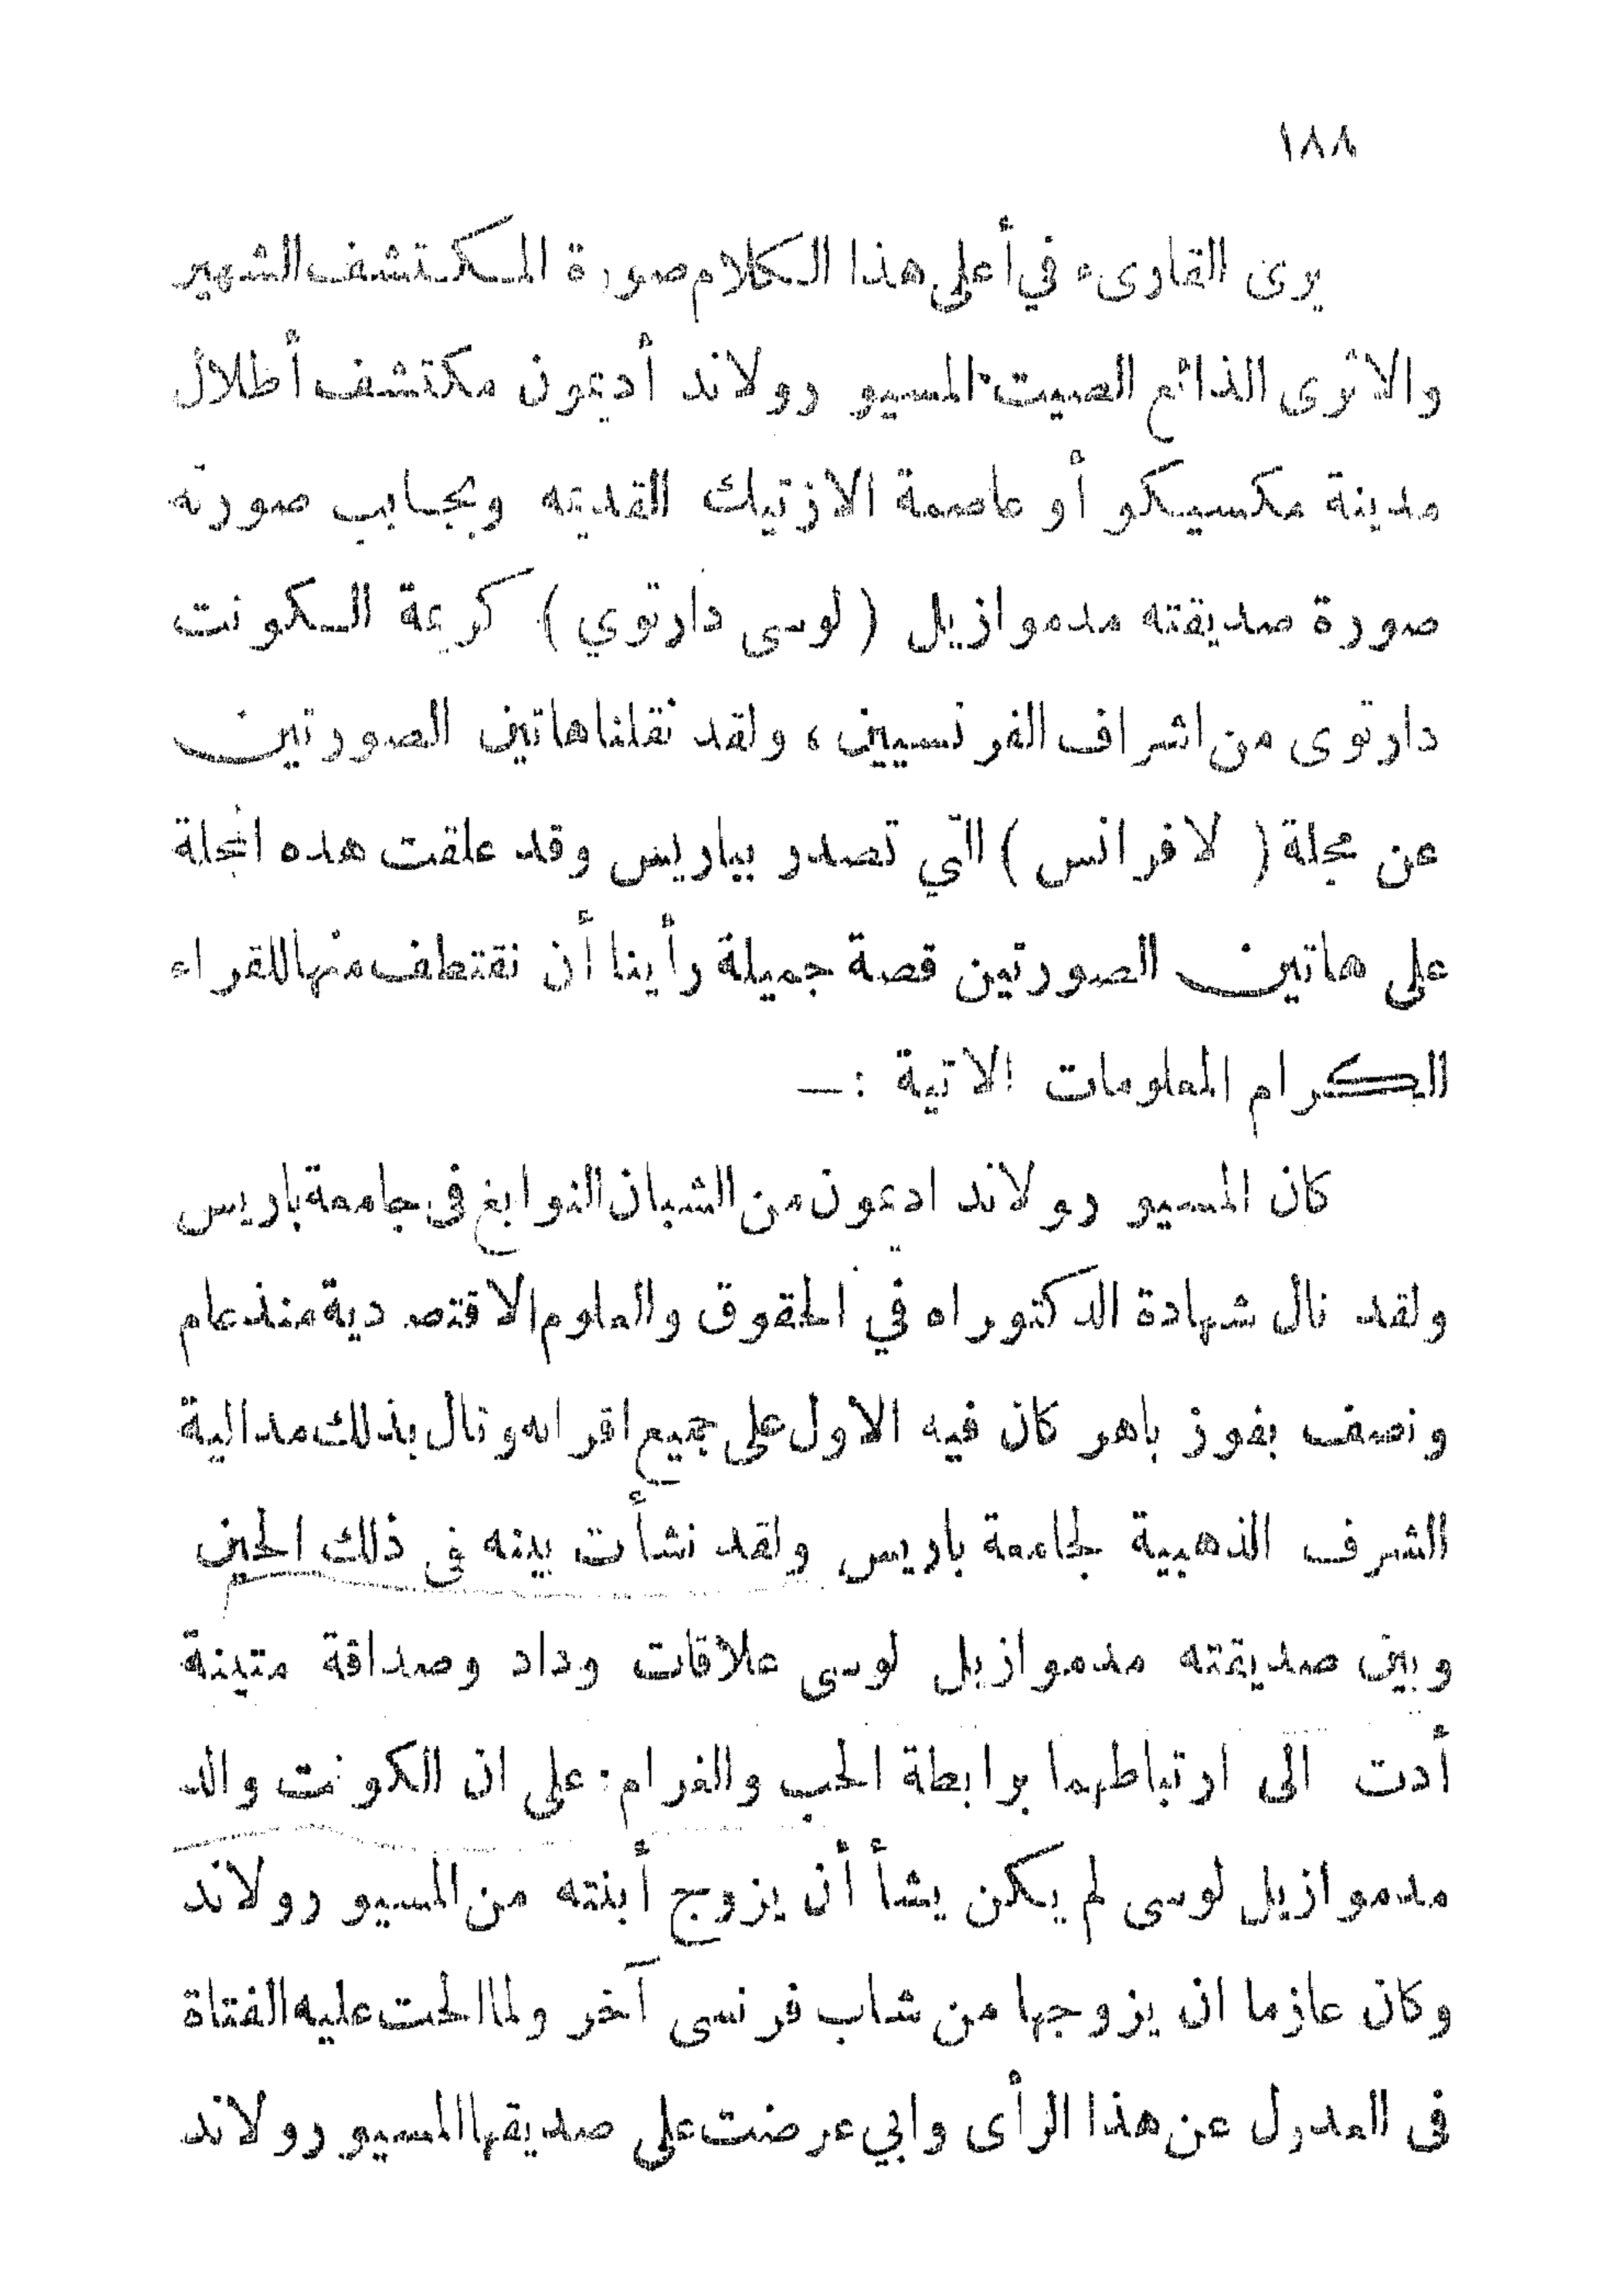 ١٨٨
يرى القارىء في أعلى هذا الكلام صورة المكتشف الشهير
والاثرى الذائع الصيت المسيو رولاند أديمون مكتشف أطلال
مدينة مكسيكو أو عاصمة الازتيك القديمه وبجانب صورته
صورة صديقته مدموازيل (لوسى دارتوي) كريمة الكونت
دارتوى من اشراف الفرنسيين ، ولقد نقلنا هاتين الصورتين
عن مجلة ( لافرانس ) التي تصدر بباريس وقد علقت هده المجلة
على هاتين الصورتين قصة جميلة رأينا أن نقتطف منها للقراء
الكرام المعلومات الاتية :—
كان المسيو رولاند اديمون من الشبان النوابغ فى جامعة باريس
ولقد نال شهادة الدكتوراه في الحقوق والعلوم الاقتصادية منذ عام
ونصف بفوز باهر كان فيه الاول على جميع اقرانه ونال بذلك مدالية
الشرف الذهبية لجامعة باريس ولقد نشأت بينه فى ذلك الحين
وبين صديقته مدموازيل لوسى علاقات وداد وصداقة متينة
أدت الى ارتباطهما برابطة الحب والغرام . على ان الكونت والد
مدموازيل لوسى لم يكن يشأ أن يزوج أبنته من المسيو رولاند
وكان عازما ان يزوجها من شاب فرنسى آخر ولما الحت عليه الفتاة
فى العدول عن هذا الرأى وابي عرضت على صديقها المسيو رولاند